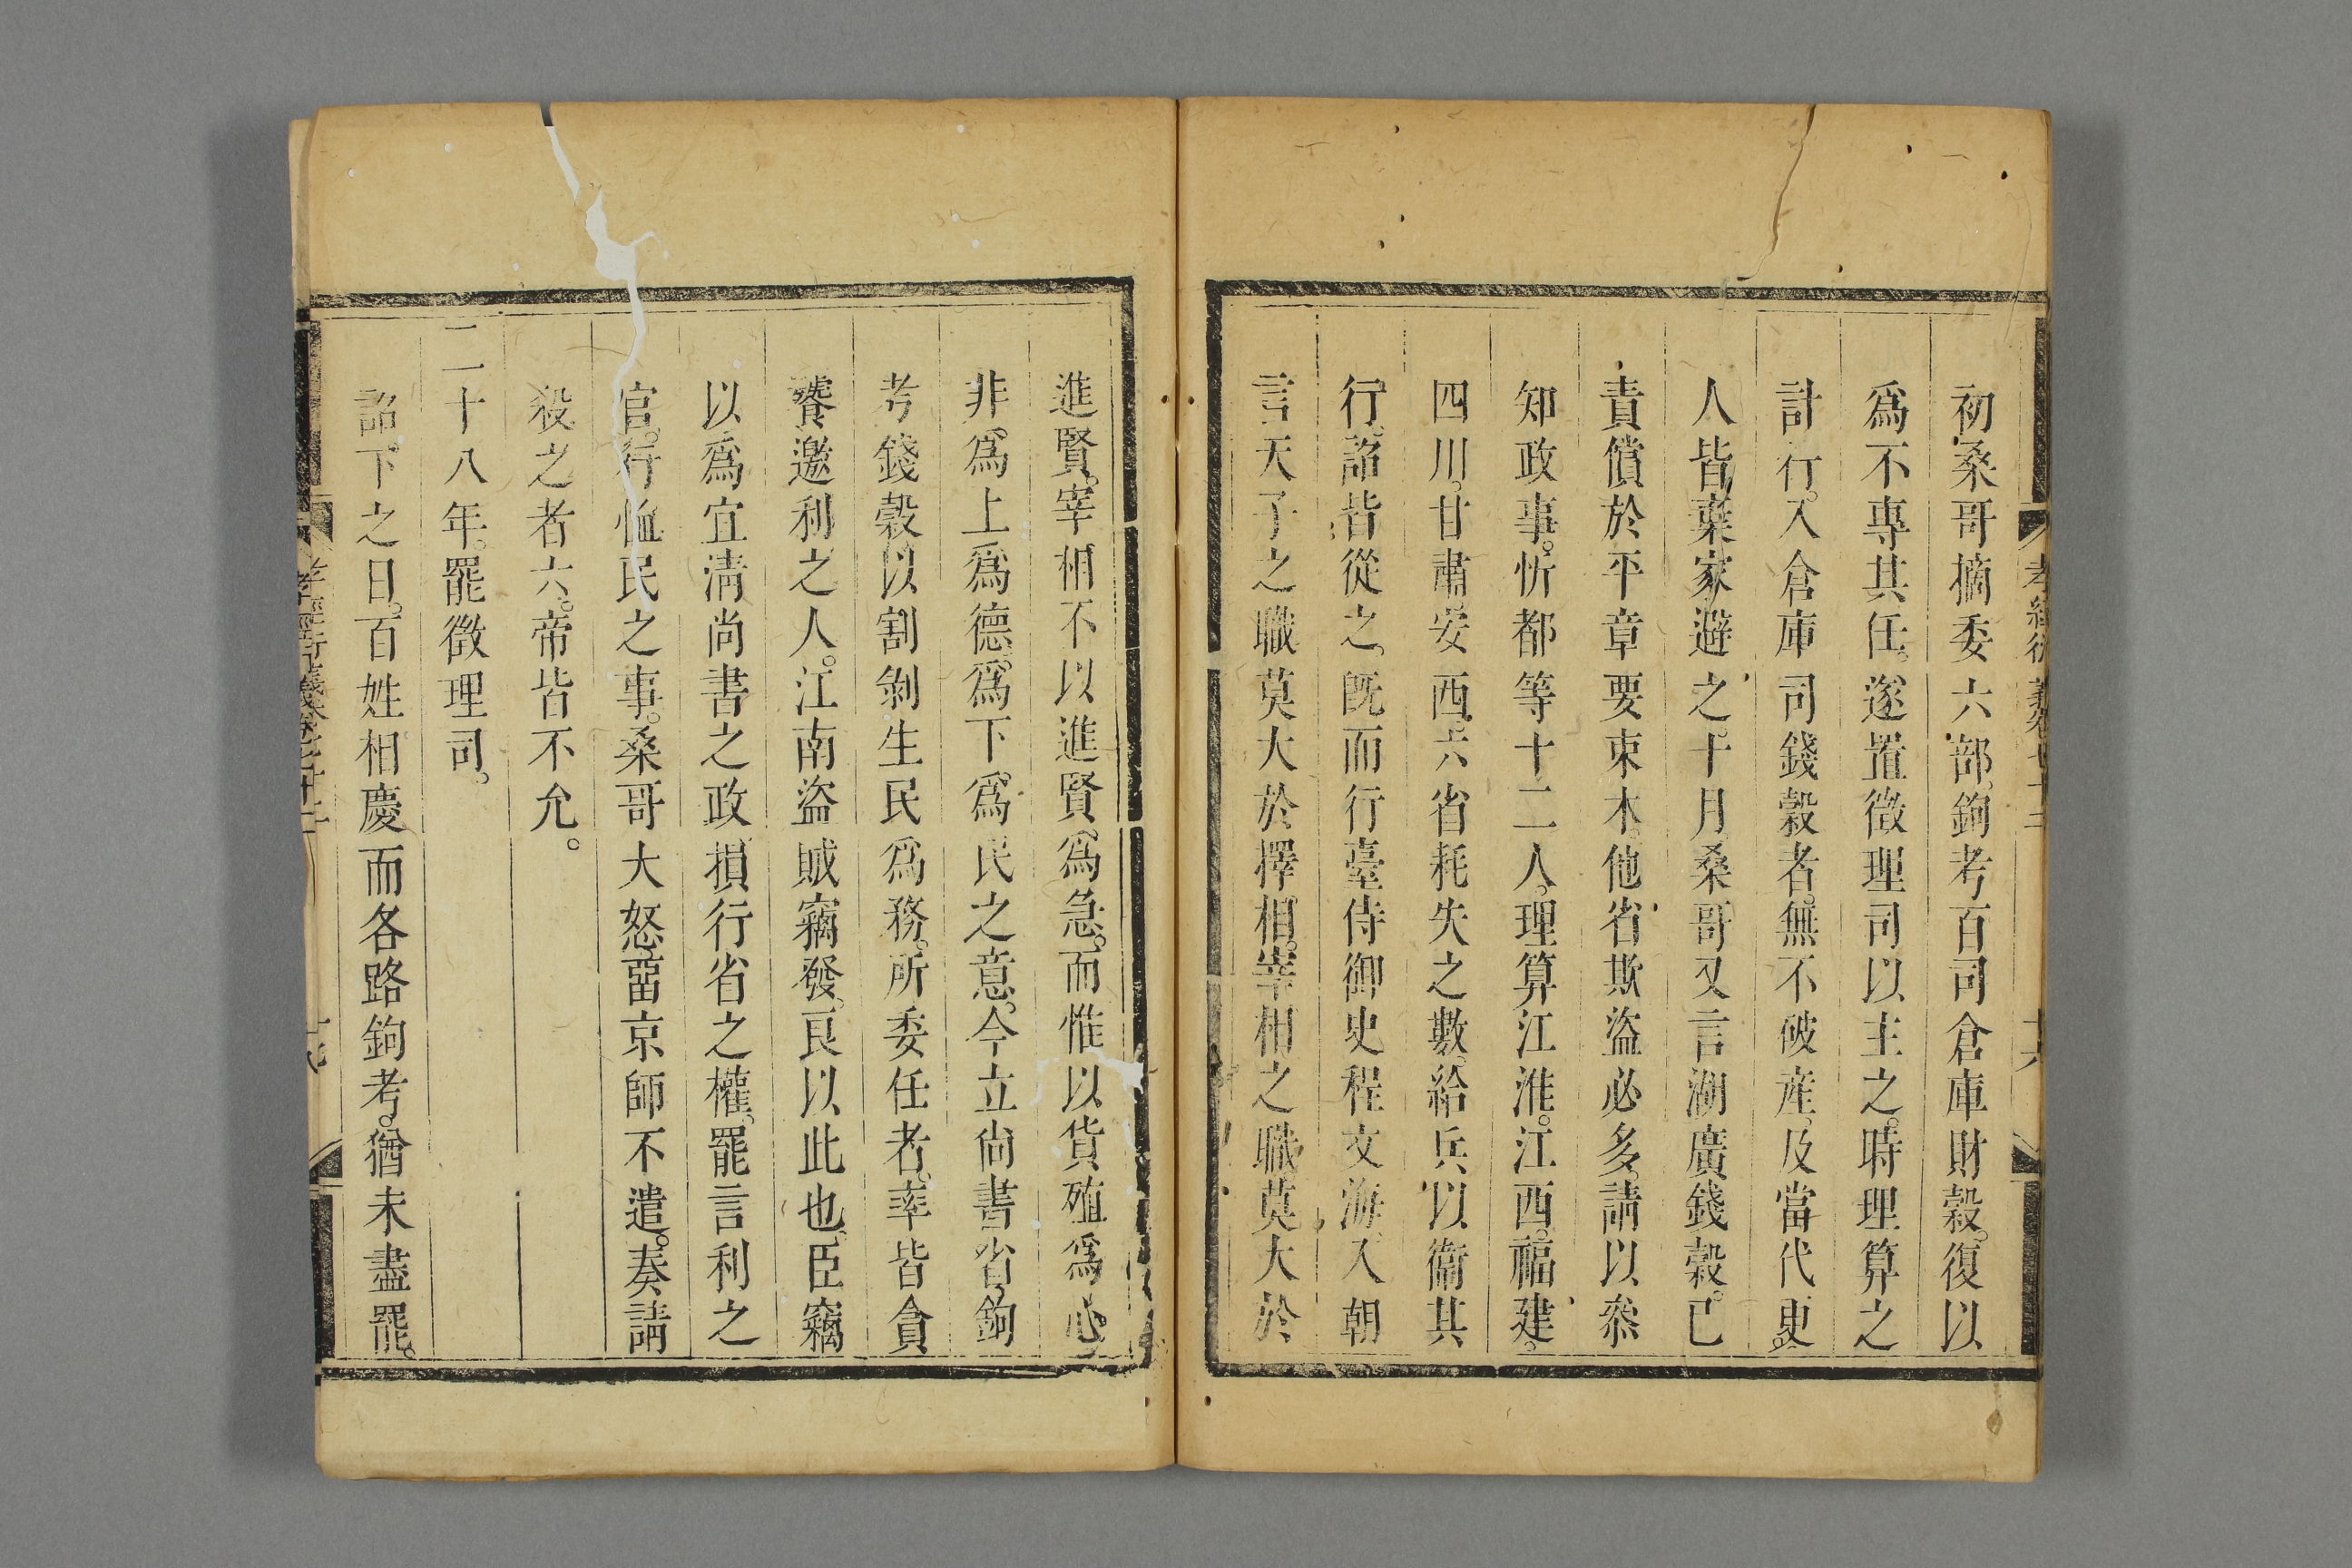 初桑哥摘委六部。鉤考百司倉庫財穀。復以
爲不專其任。遂置徵理司以主之。時理算之
計行。入倉庫司錢穀者。無不破産。及當代吏。
人皆棄家避之。十月桑哥又言湖廣錢穀。已
責償於平章要束木。他省欺盜必多。請以參
知政事。忻都等十二人。理算江淮。江西。福建。
四川。甘肅。安西。六省耗失之數。給兵以衞其
行。詔皆從之。既而行臺侍御史程文海入朝
言天子之職莫大於擇相。宰相之職莫大於
進賢。宰相不以進賢爲急。而惟以貨殖爲心。
非爲上爲德。爲下爲民之意。今立尙書省。鉤
考錢穀以割剝生民爲務。所委任者。率皆貪
饕邀利之人。江南盜賊竊發。良以此也。臣竊
以爲宜淸尙書之政。損行省之權。罷言利之
官。行恤民之事。桑哥大怒。留京師不遣。奏請
殺之者六。帝皆不允。
二十八年。罷徵理司。
詔下之日。百姓相慶而各路鉤考。猶未盡罷。
孝經衍義卷七十二